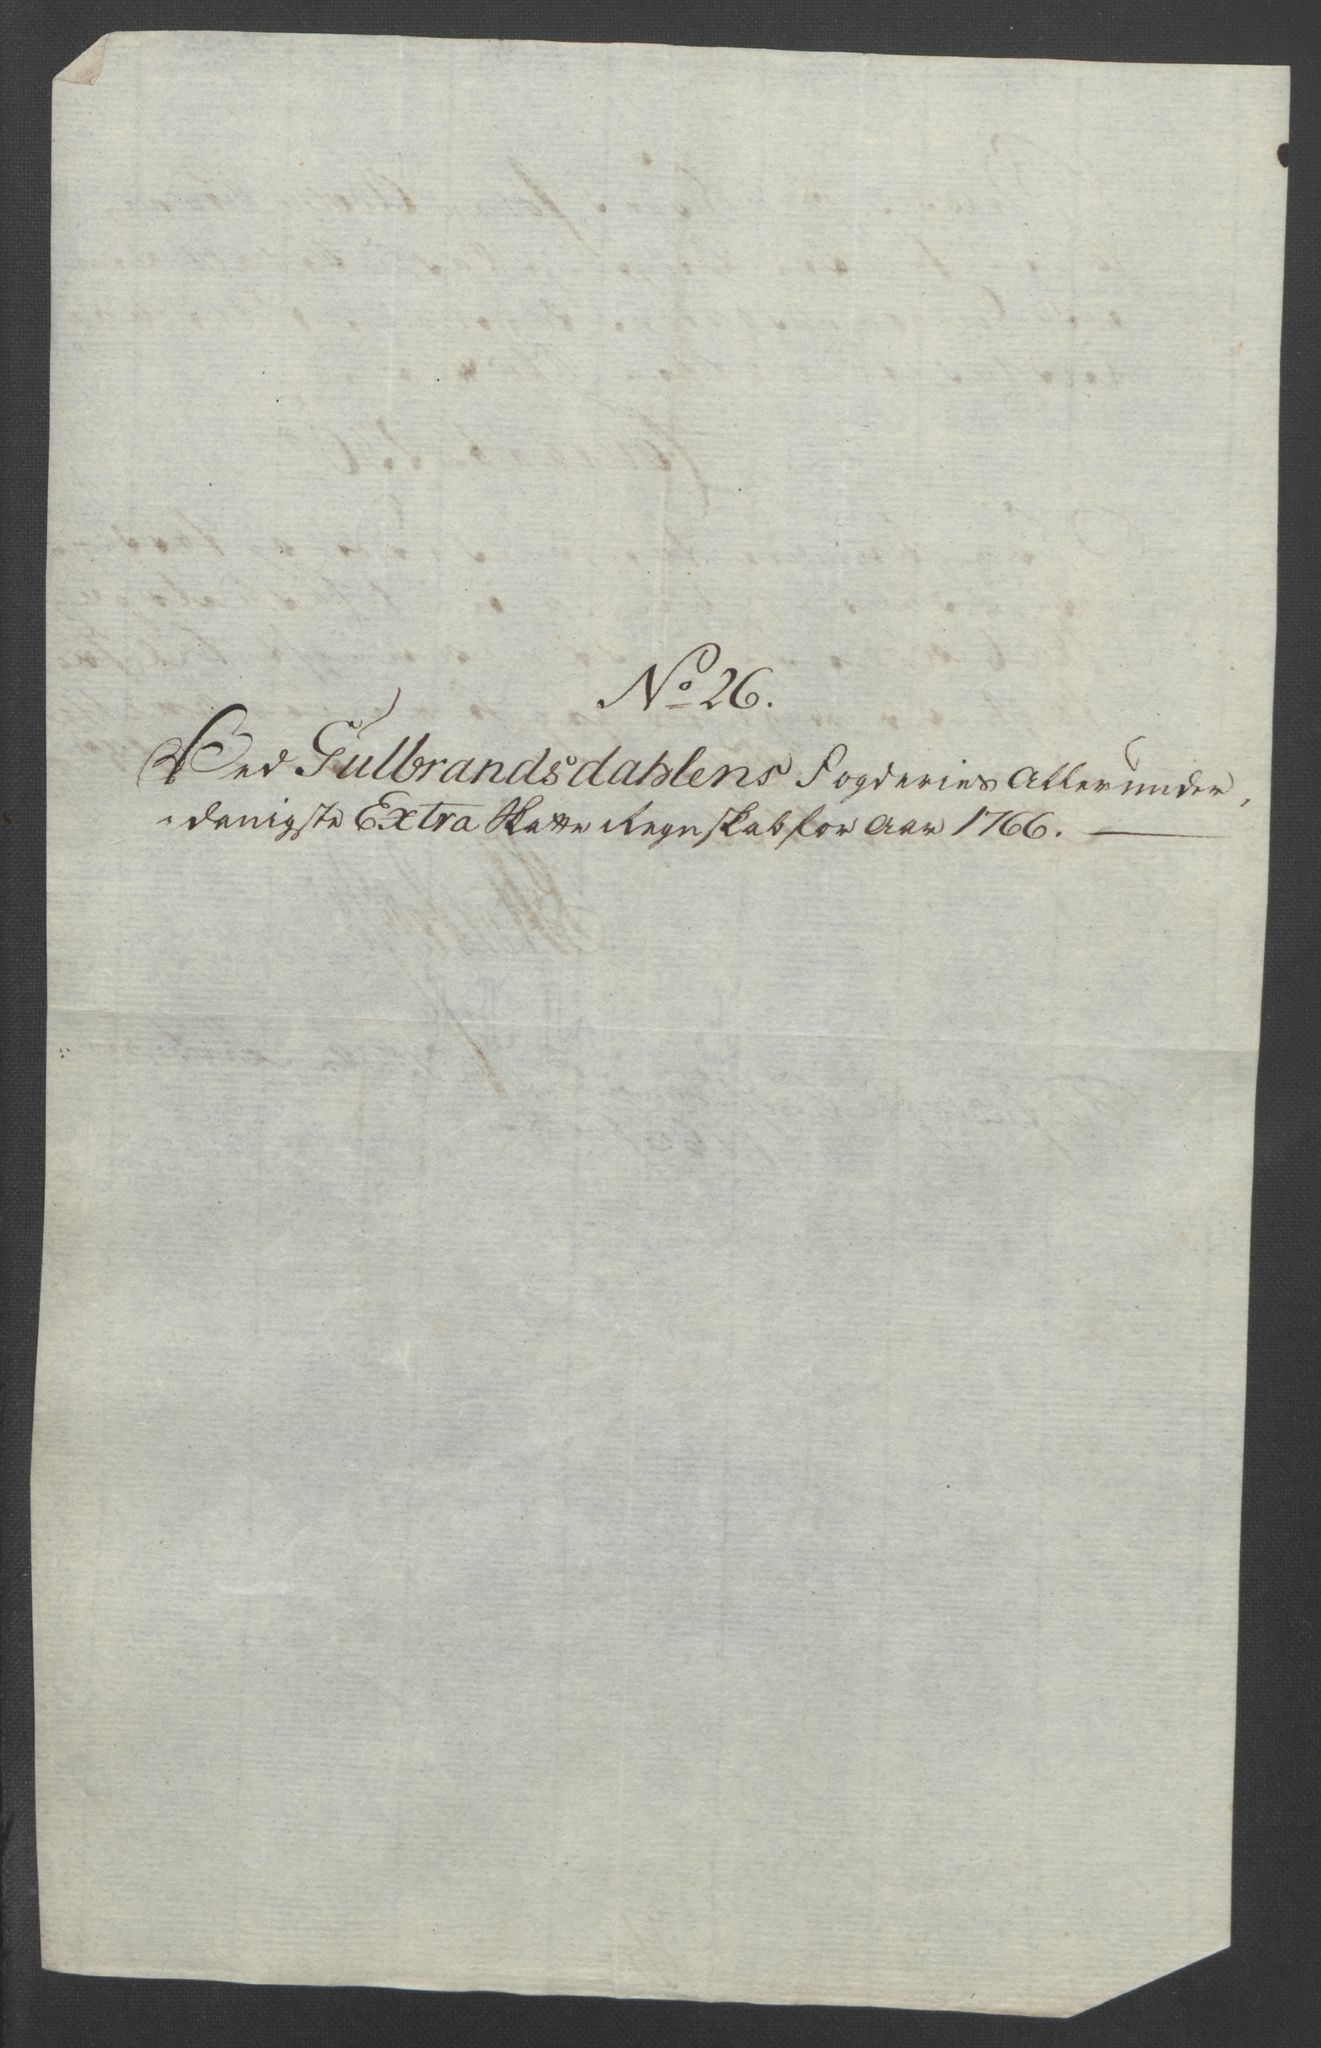 No 26.
Ved Gulbrandsdahlens Fogderies Allerunder,
danigste Extra Skatte Regnskab for Aar 1766.